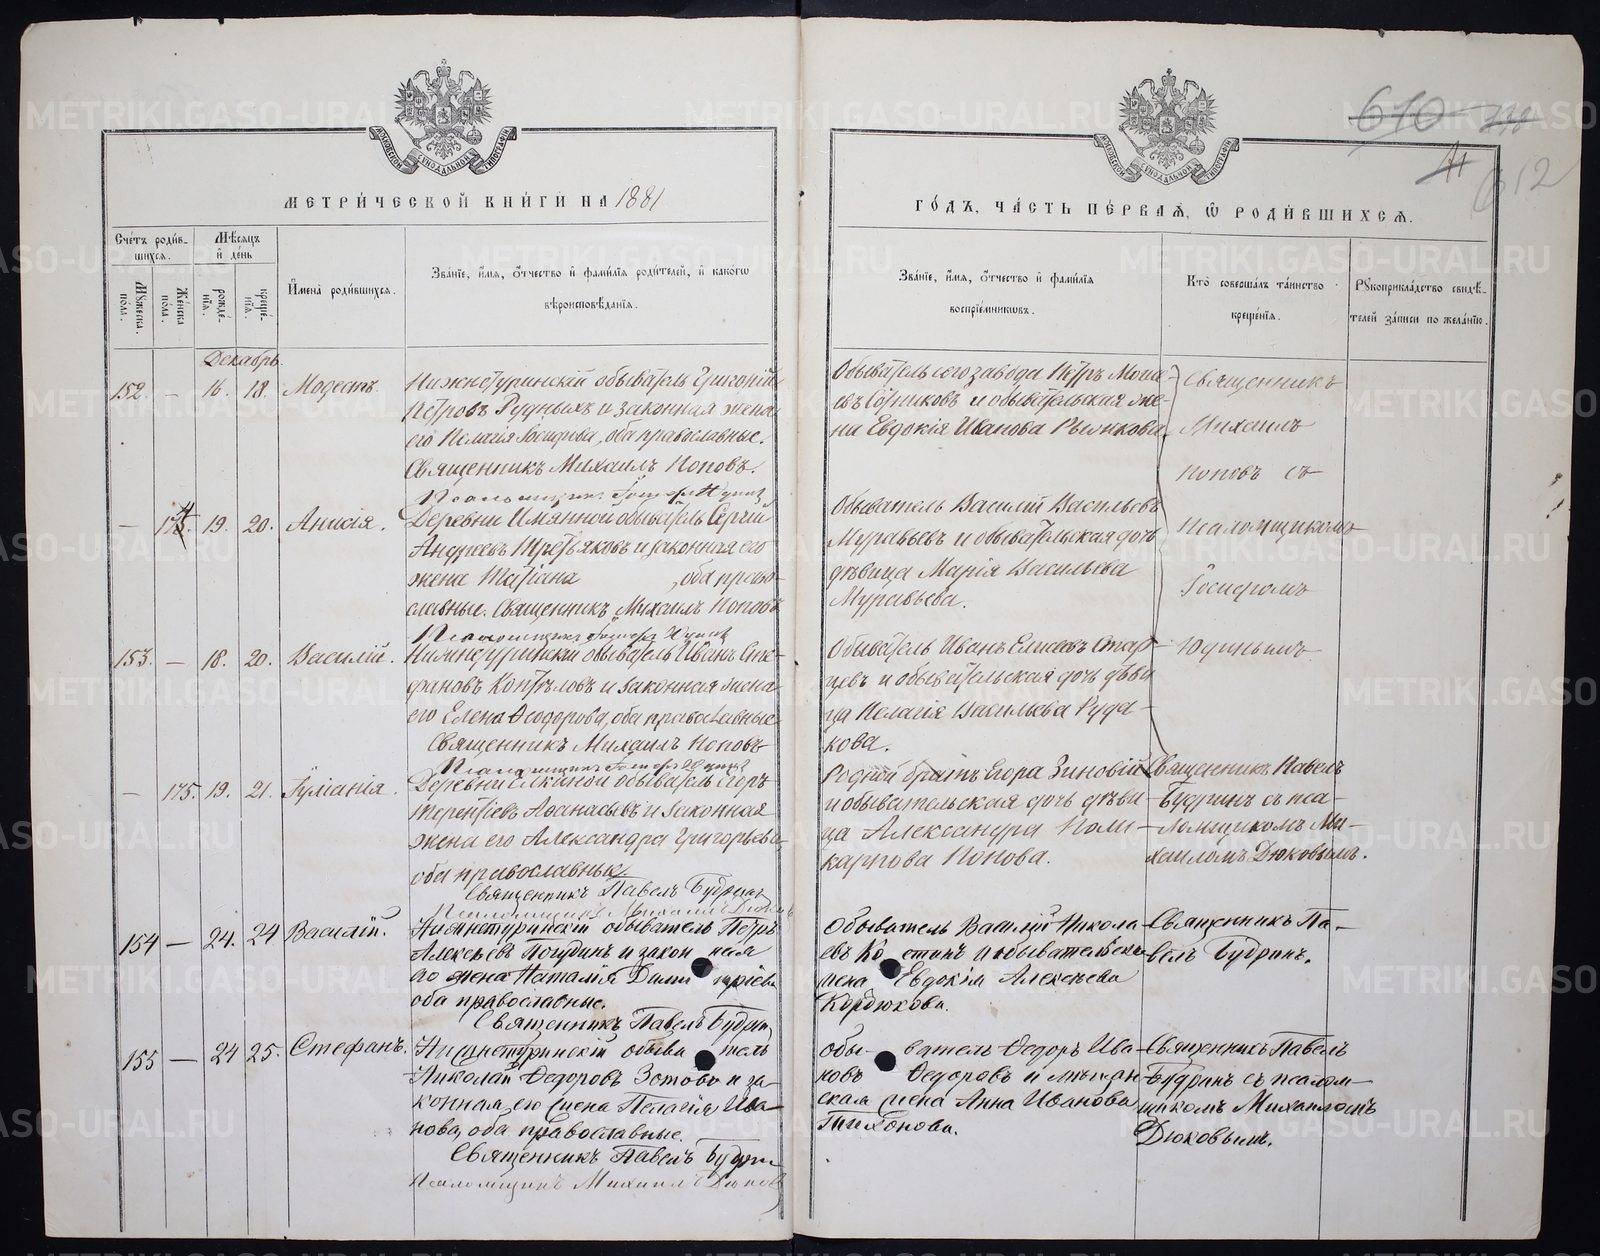 МЕТРИ́ЧЕСКОЙ КНИ́ГИ НА 1881
ГО́ДЪ, ЧА́СТЬ ПЕ́РВАѦ, Ѡ РОДИ́ВШИХСѦ.
610
612
Сче́тъ роди́в-
шихсѧ.
Мꙋжеска
по́ла.
Же́нска
по́ла.
Мѣ́сѧцъ
и҆ де́нь
рожде́-
нїѧ.
креще́-
нїѧ.
И҆мена̀ роди́вшихсѧ.
Зва́нїе, и҆́мѧ, ѻ҆́тчество и҆ фами́лїѧ роди́телей, и҆ како́гѡ
вѣроисповѣ́данїѧ.
Зва́нїе, и҆́мѧ, ѻ҆́тчество и҆ фами́лїѧ
воспрїе́мникѡвъ.
Кто̀ соверша́лъ та́инство
креще́нїѧ.
Рꙋкоприкла́дство свидѣ́-
телей за́писи по жела́нїю.
Декабрь.
152. — 16. 18. Модестъ.
Нижнетуринскій обыватель Григорій
Петровъ Рудныхъ и законная жена
его Пелагія, оба православные.
Священникъ Михаилъ Поповъ.
Обыватель сего завода Петръ
Сотниковъ и обывательская же-
на Евдокія Иванова
Священникъ
Михаилъ
Поповъ съ
Псаломщикомъ
Іосифомъ
Юдинымъ
— 19. 20. Анисія.
Деревни Имянной обыватель Сергій
Андреевъ Третьяковъ и законная его
жена Татіана, оба право-
славные. Священникъ Михаилъ Поповъ
Обыватель Василій Васильевъ
Муравьевъ и обывательская дочь
дѣвица Марія Васильева
Муравьева.
153. — 18. 20. Василій.
Нижнетуринскій обыватель Иванъ Сте-
фановъ Коптѣловъ и законная жена
его Елена Ѳеодорова, оба православные
Священникъ Михаилъ Поповъ
Обыватель Иванъ Елисеевъ Стар-
цевъ и обывательская дочь дѣви-
ца Пелагія Васильева Руда-
кова.
— 175. 19. 21. Іуліанія.
Деревни Елкиной обыватель Егоръ
Терентіевъ Аѳанасьевъ и законная
жена его Александра Григорьева
оба православные
Священникъ Павелъ Будринъ
Псаломщикъ Михаилъ Дюковъ
Родной братъ Егора Зиновій
и обывательская дочь дѣви-
ца Александра Поли-
карпова Попова.
Священникъ Павелъ
Будринъ съ пса-
ломщикомъ Ми-
хаиломъ Дюковымъ.
154 — 24. 24 Василій.
Нижнетуринскій обыватель Петръ
Алексѣевъ и закон ная
его жена Наталія Дими тріева
оба православные.
Священникъ Павелъ Будрин
Обыватель Василій Никола-
евъ Ко стинъ и обывательска
жена Евдокія Алексѣева
Кордюкова.
Священникъ Па-
велъ Будринъ.
155 — 24 25. Стефанъ.
Нижнетуринскій обыва тель
Николай Ѳедоровъ Зотовъ и за-
конная его жена Пелагія Ива-
нова, оба православные.
Священникъ Павелъ Будрин
Псаломщикъ Михаилъ Дюков
обы- ватель Ѳедоръ Ива-
новъ Ѳедоровъ и мѣщан
ская жена Анна Иванова
Тихонова.
Священникъ Павелъ
Будринъ съ псалом-
щикомъ Михаиломъ
Дюковымъ.
METRIKI.GASO-URAL.RU